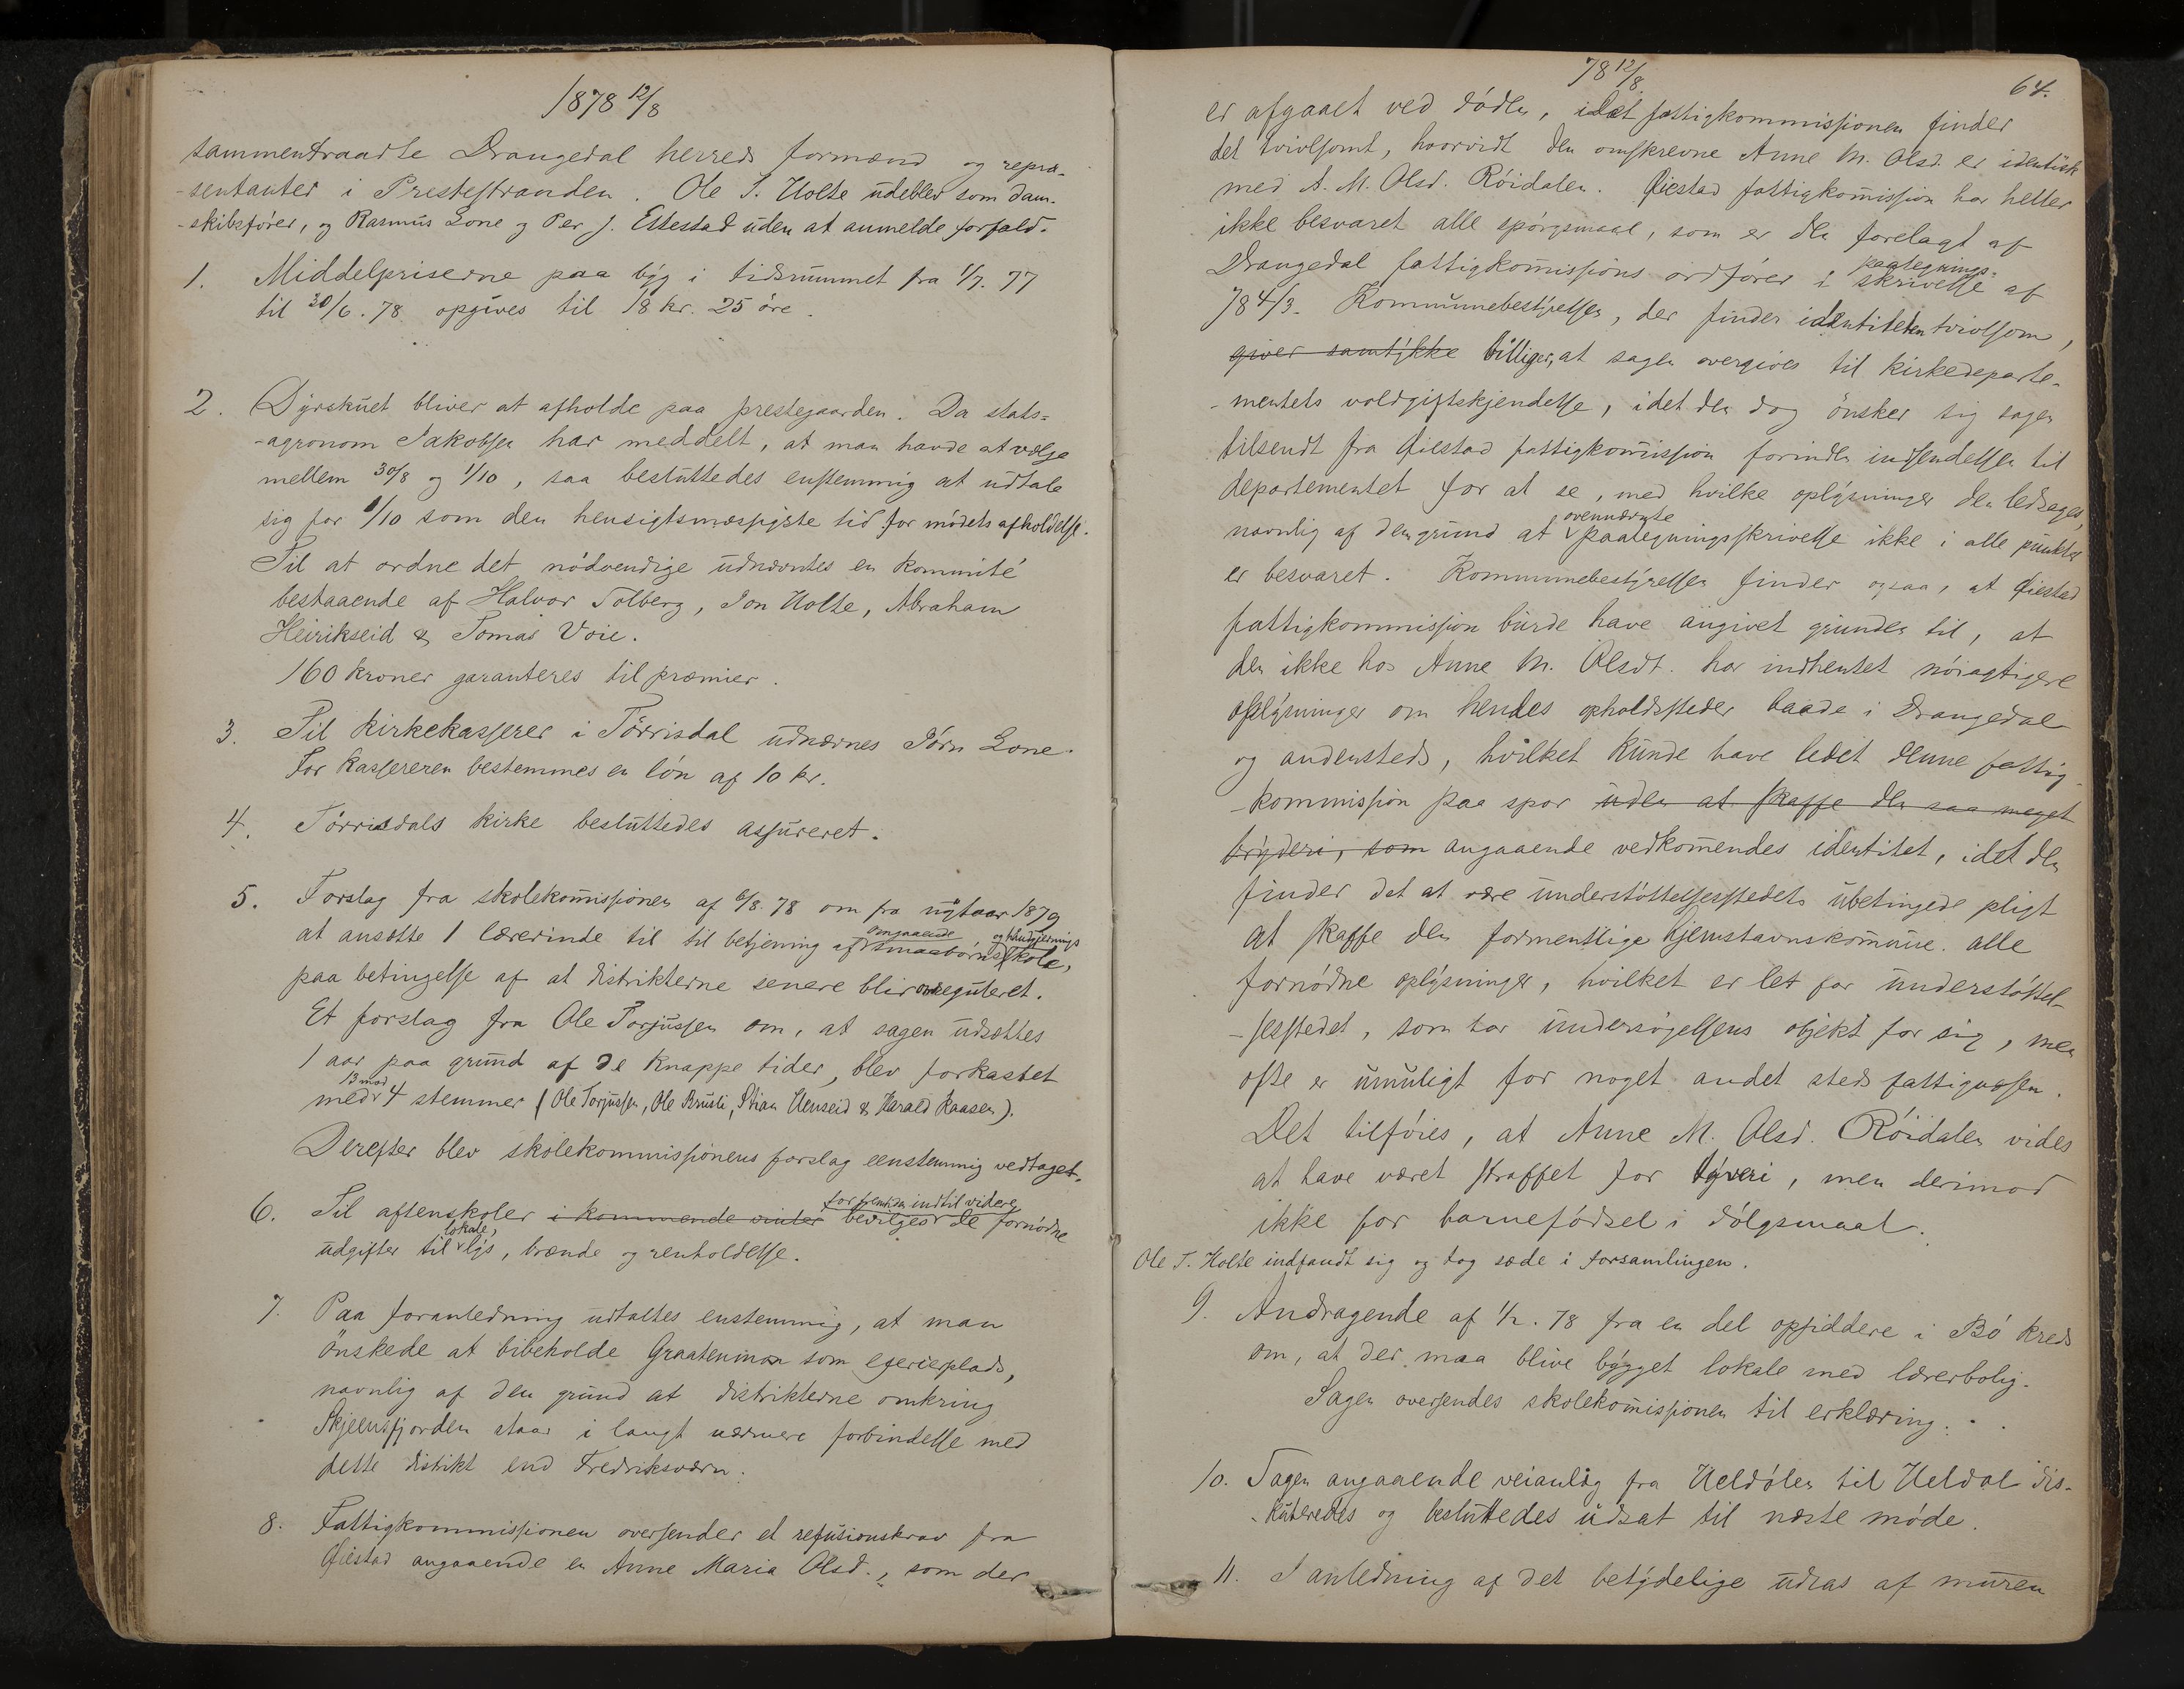 1878 12/8
sammentraadte Drangedal herreds formænd og repræ-
-sentanter i Prestestranden. Ole T. Holte udeblev som dam-
-skibsfører, og Rasmus Lone og Per J. Ettestad uden at anmelde forfald.
1. Middelpriserne paa byg i tidsrummet fra 1/7. 77
til 30/6. 78 opgives til 18 kr. 25 øre.
2. Dyrskuet bliver at afholde paa prestegaarden. Da stats=
-agronom Jakobsen har meddelt, at man havde at vælge
mellem 30/8 og 1/10, saa besluttedes enstemmig at udtale
sig for 1/10 som den hensigtsmæssigste tid for mødets afholdelse.
Til at ordne det nødvendige udnævntes en kommité
bestaaende af Halvor Tolberg, Jon Holte, Abraham
Heirikseid & Tomas Voie.
160 kroner garanteres til præmier.
3. Til kirkekasserer i Tørrisdal udnævnes Jørn Lone.
For kassereren bestemmes en løn af 10 kr.
4. Tørrisdals kirke besluttedes assureret.
5. Forslag fra skolekommissionen af 6/8. 78 om fra nytaar 1879
at ansætte 1 lærerinde til til betjening af omgaaende smaabørns og haandgjernings skole,
paa betingelse af at distrikterne senere blir omreguleret.
Et forslag fra Ole Torjussen om, at sagen udsættes
1 aar paa grund af de knappe tider, blev forkastet
med 13 mod 4 stemmer (Ole Torjussen, Ole Brusli, Stian Henseid & Harald Kaasen).
Derefter blev skolekommissionens forslag eenstemmig vedtaget.
6. Til aftenskoler i kommende vinter bevilges for fremtiden indtil videre de fornødne
udgifter til lokale, lys, brænde og renholdelse.
7. Paa foranledning udtaltes enstemmig, at man
ønskede at bibeholde Graatenmoen som exerierplads,
navnlig af den grund at distrikterne omkring
Skjeensfjorden staar i langt nærmere forbindelse med
dette distrikt end Fredriksværn.
8. Fattigkommissionen oversender et refusionskrav fra
Øiestad angaaende en Anne Maria Olsd., som der
78 12/8. 64.
er afgaaet ved døden, idet fattigkommissionen finder
det tvivlsomt, hvorvidt den omskrevne Anne M. Olsd. er identisk
med A. M. Olsd. Røidalen. Øiestad fattigkommission har heller
ikke besvaret alle spørgsmaal, som er den forelagt af
Drangedal fattigkommissions ordfører i paategnings= skrivelse af
78 4/3. Kommunebestyrelsen, der finder identiteten tvivlsom,
giver samtykke billiger, at sagen overgives til kirkedeparte-
-mentets voldgiftskjendelse, idet den dog ønsker sig sagen
tilsendt fra Øiestad fattigkommission forinden indsendelsen til
departementet for at se, med hvilke oplysninger den ledsages,
navnlig af den grund at ovennævnte paategningsskrivelse ikke i alle punkter
er besvaret. Kommunebestyrelsen finder ogsaa, at Øiestad
fattigkommission burde have angivet grunden til, at
den ikke hos Anne M. Olsdt. har indhentet nøiagtigere
oplysninger om hendes opholdssteder baade i Drangedal
og andensteds, hvilket kunde have ledet denne fattig-
-kommission paa spor uden at skaffe den saa meget
bryderi, som angaaende vedkommendes identitet, idet den
finder det at være understøttelsesstedets ubetingede pligt
at skaffe den formentlige hjemstavnskommune alle
fornødne oplysninger, hvilket er let for understøttel-
-sesstedet, som har undersøgelsens objekt for sig, men
ofte er umuligt for noget andet steds fattigvæsen.
Det tilføies, at Anne M. Olsd. Røidalen vides
at have været straffet for tyveri, men derimod
ikke for barnefødsel i dølgsmaal.
Ole T. Holte indfandt sig og tog sæde i forsamlingen.
9. Andragende af 1/2. 78 fra en del opsiddere i Bø kreds
om, at der maa blive bygget lokale med lærerbolig.
Sagen oversendes skolekommissionen til erklæring.
10. Sagen angaaende veianlæg fra Heldølen til Heldal dis-
-kuteredes og besluttedes udsat til næste møde.
11. I anledning af det betydelige udras af muren